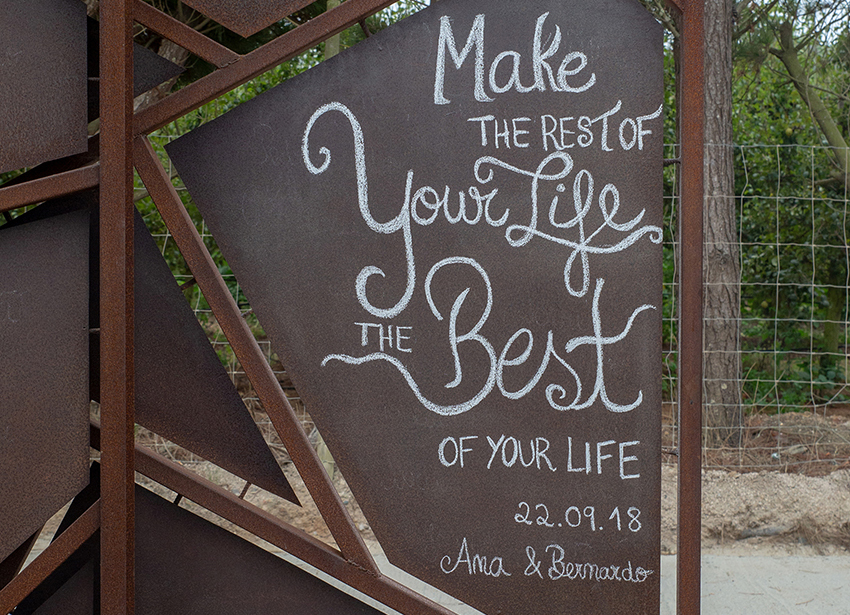 Make
THE REST OF
Your Life
THE
Best
OF YOUR LIFE
22.09.18
Ana & Bernardo